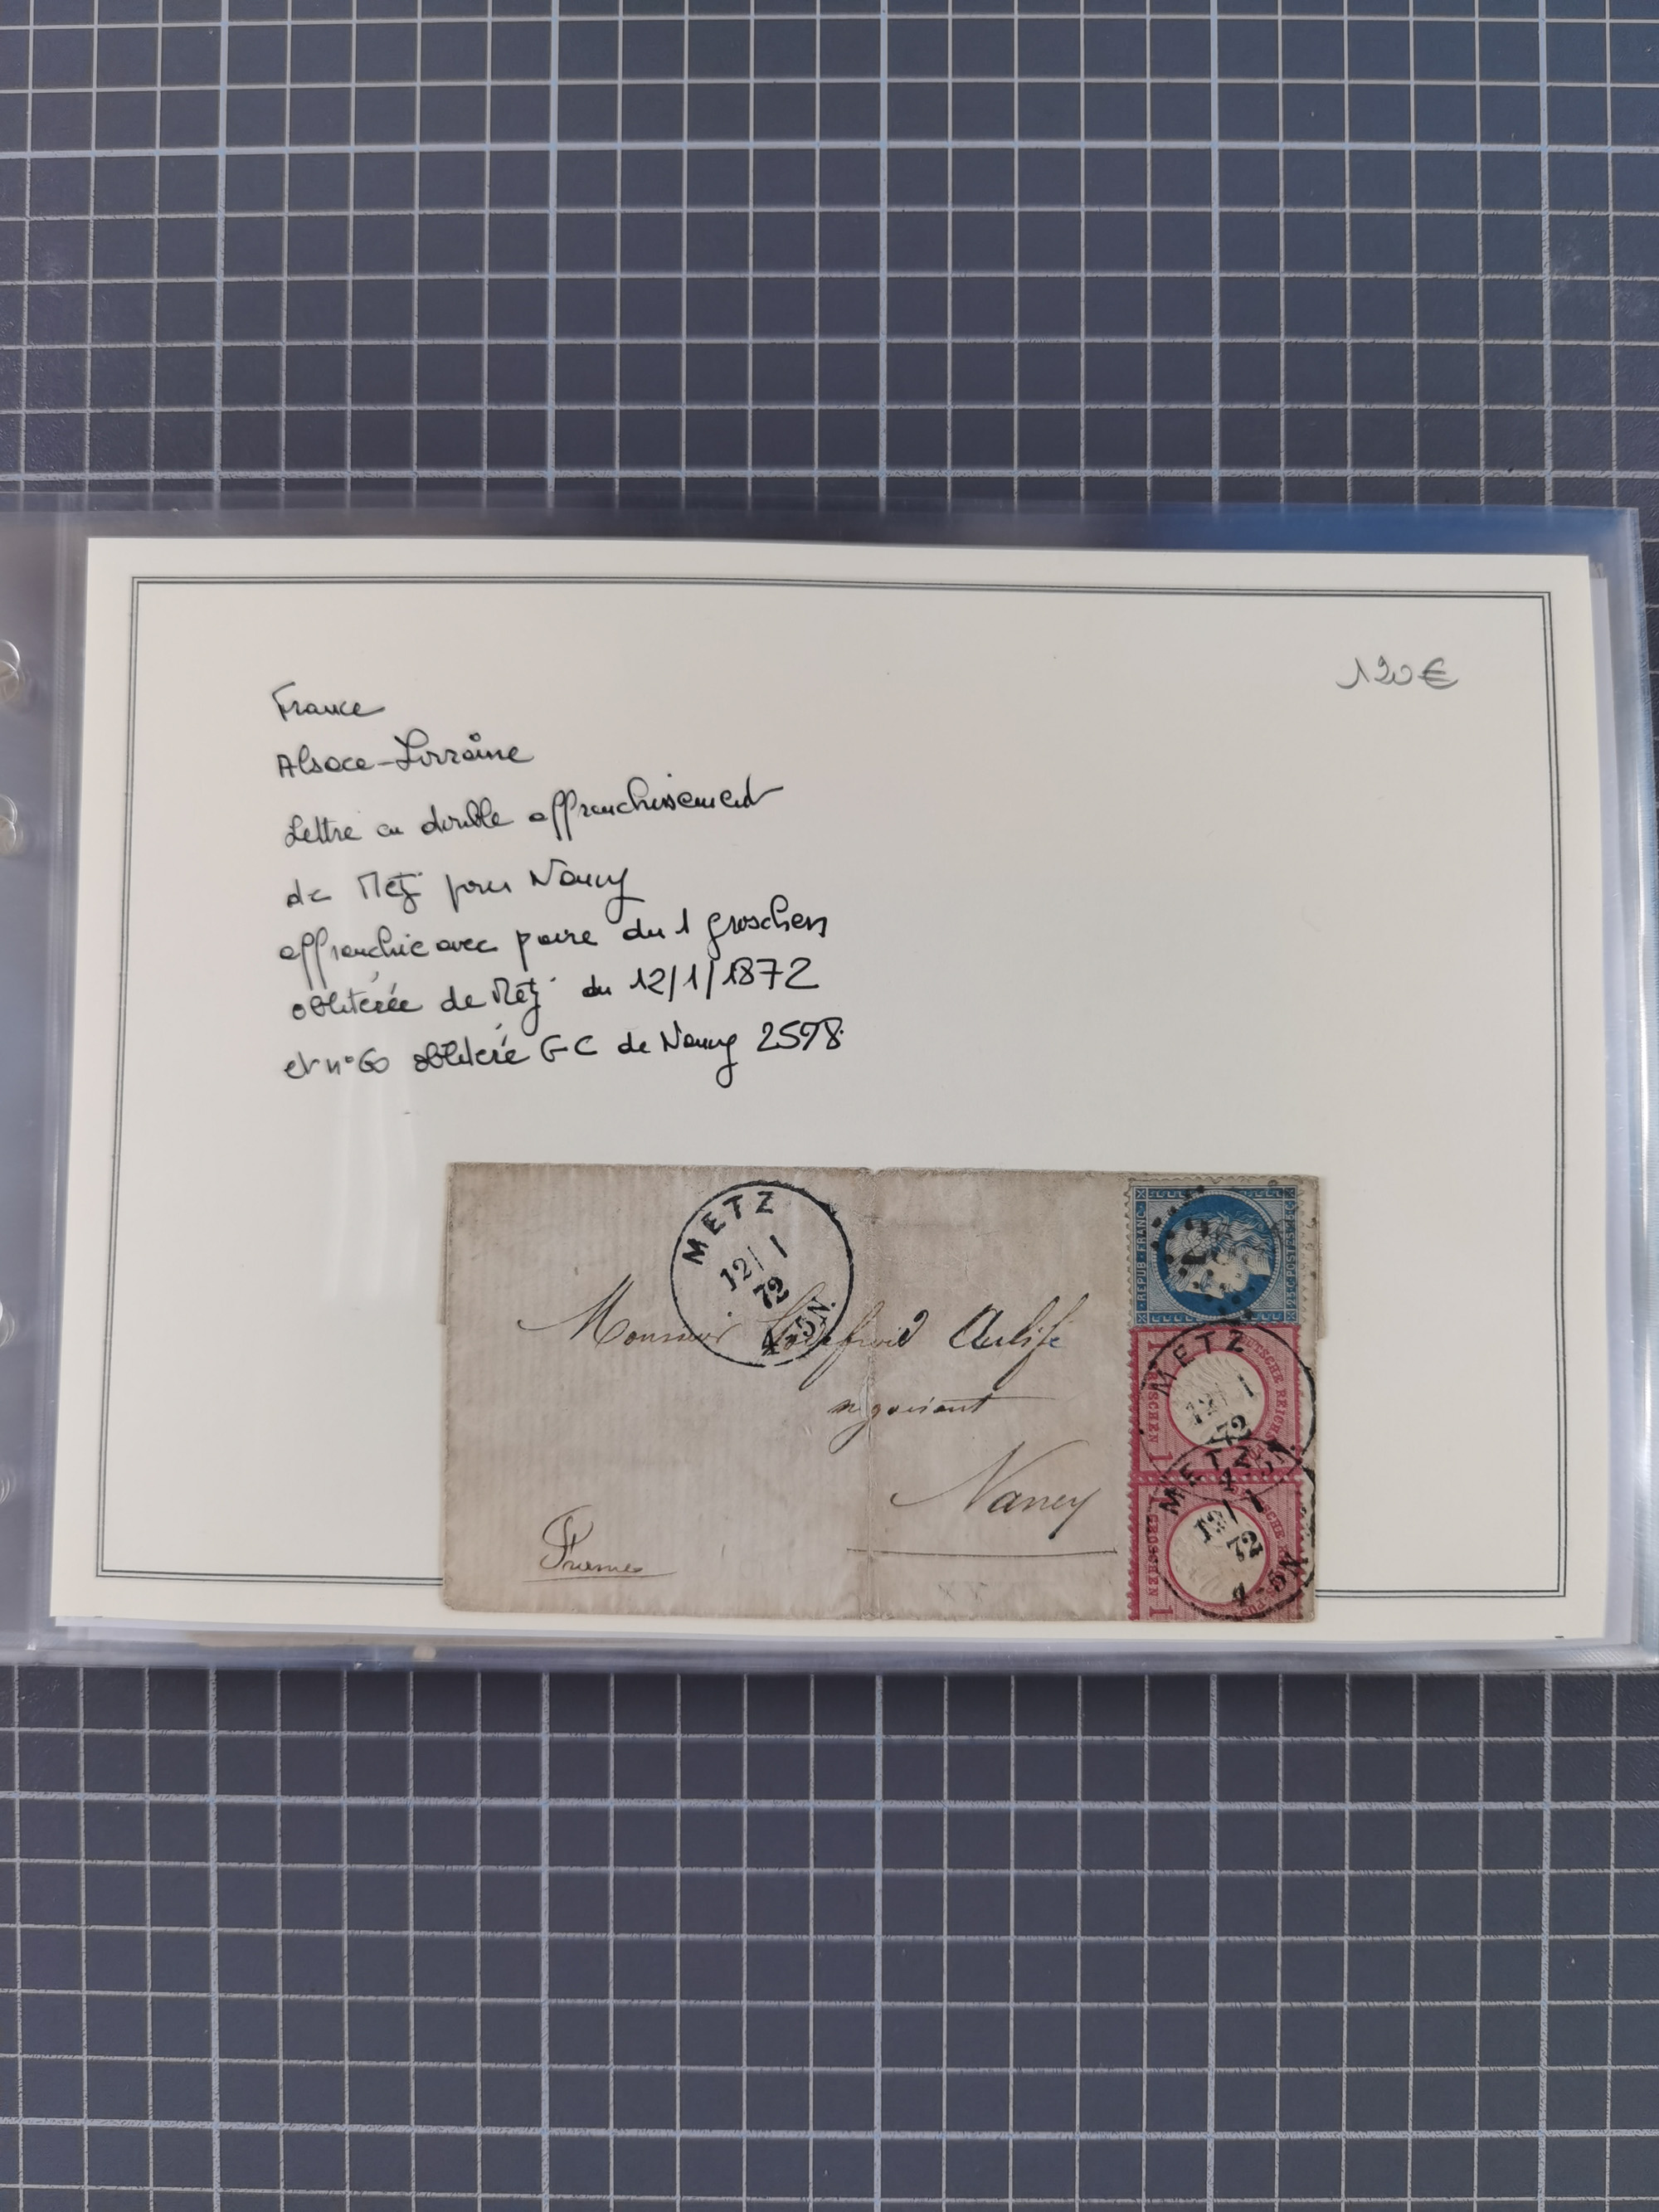 France
120€
Alsace-Lorraine
Lettre en double affranchissement
de Metz pour Nancy
affranchie avec paire du 1 groschen
oblitérée de Metz du 12/1/1872
et n°60 oblitéré GC de Nancy 2598
METZ
12/1
72
4-5N.
Monsieur Aulifé
négociant
Nancy
REPUB·FRANC·
METZ
12/1
72
DEUTSCHE REICHS
GROSCHEN
1
METZ
12/1
72
GROSCHEN
1